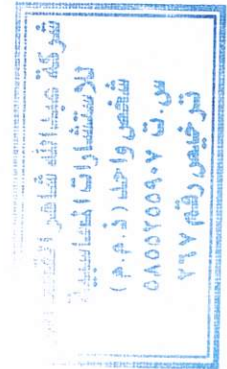 شركة عبدالله شاهر
للاستشارات المحاسبية
شخص واحد ( ذ . م . م )
س . ت ٥٨٥٥٢٥٥٩٠٧
ترخيص رقم ٧٩٧